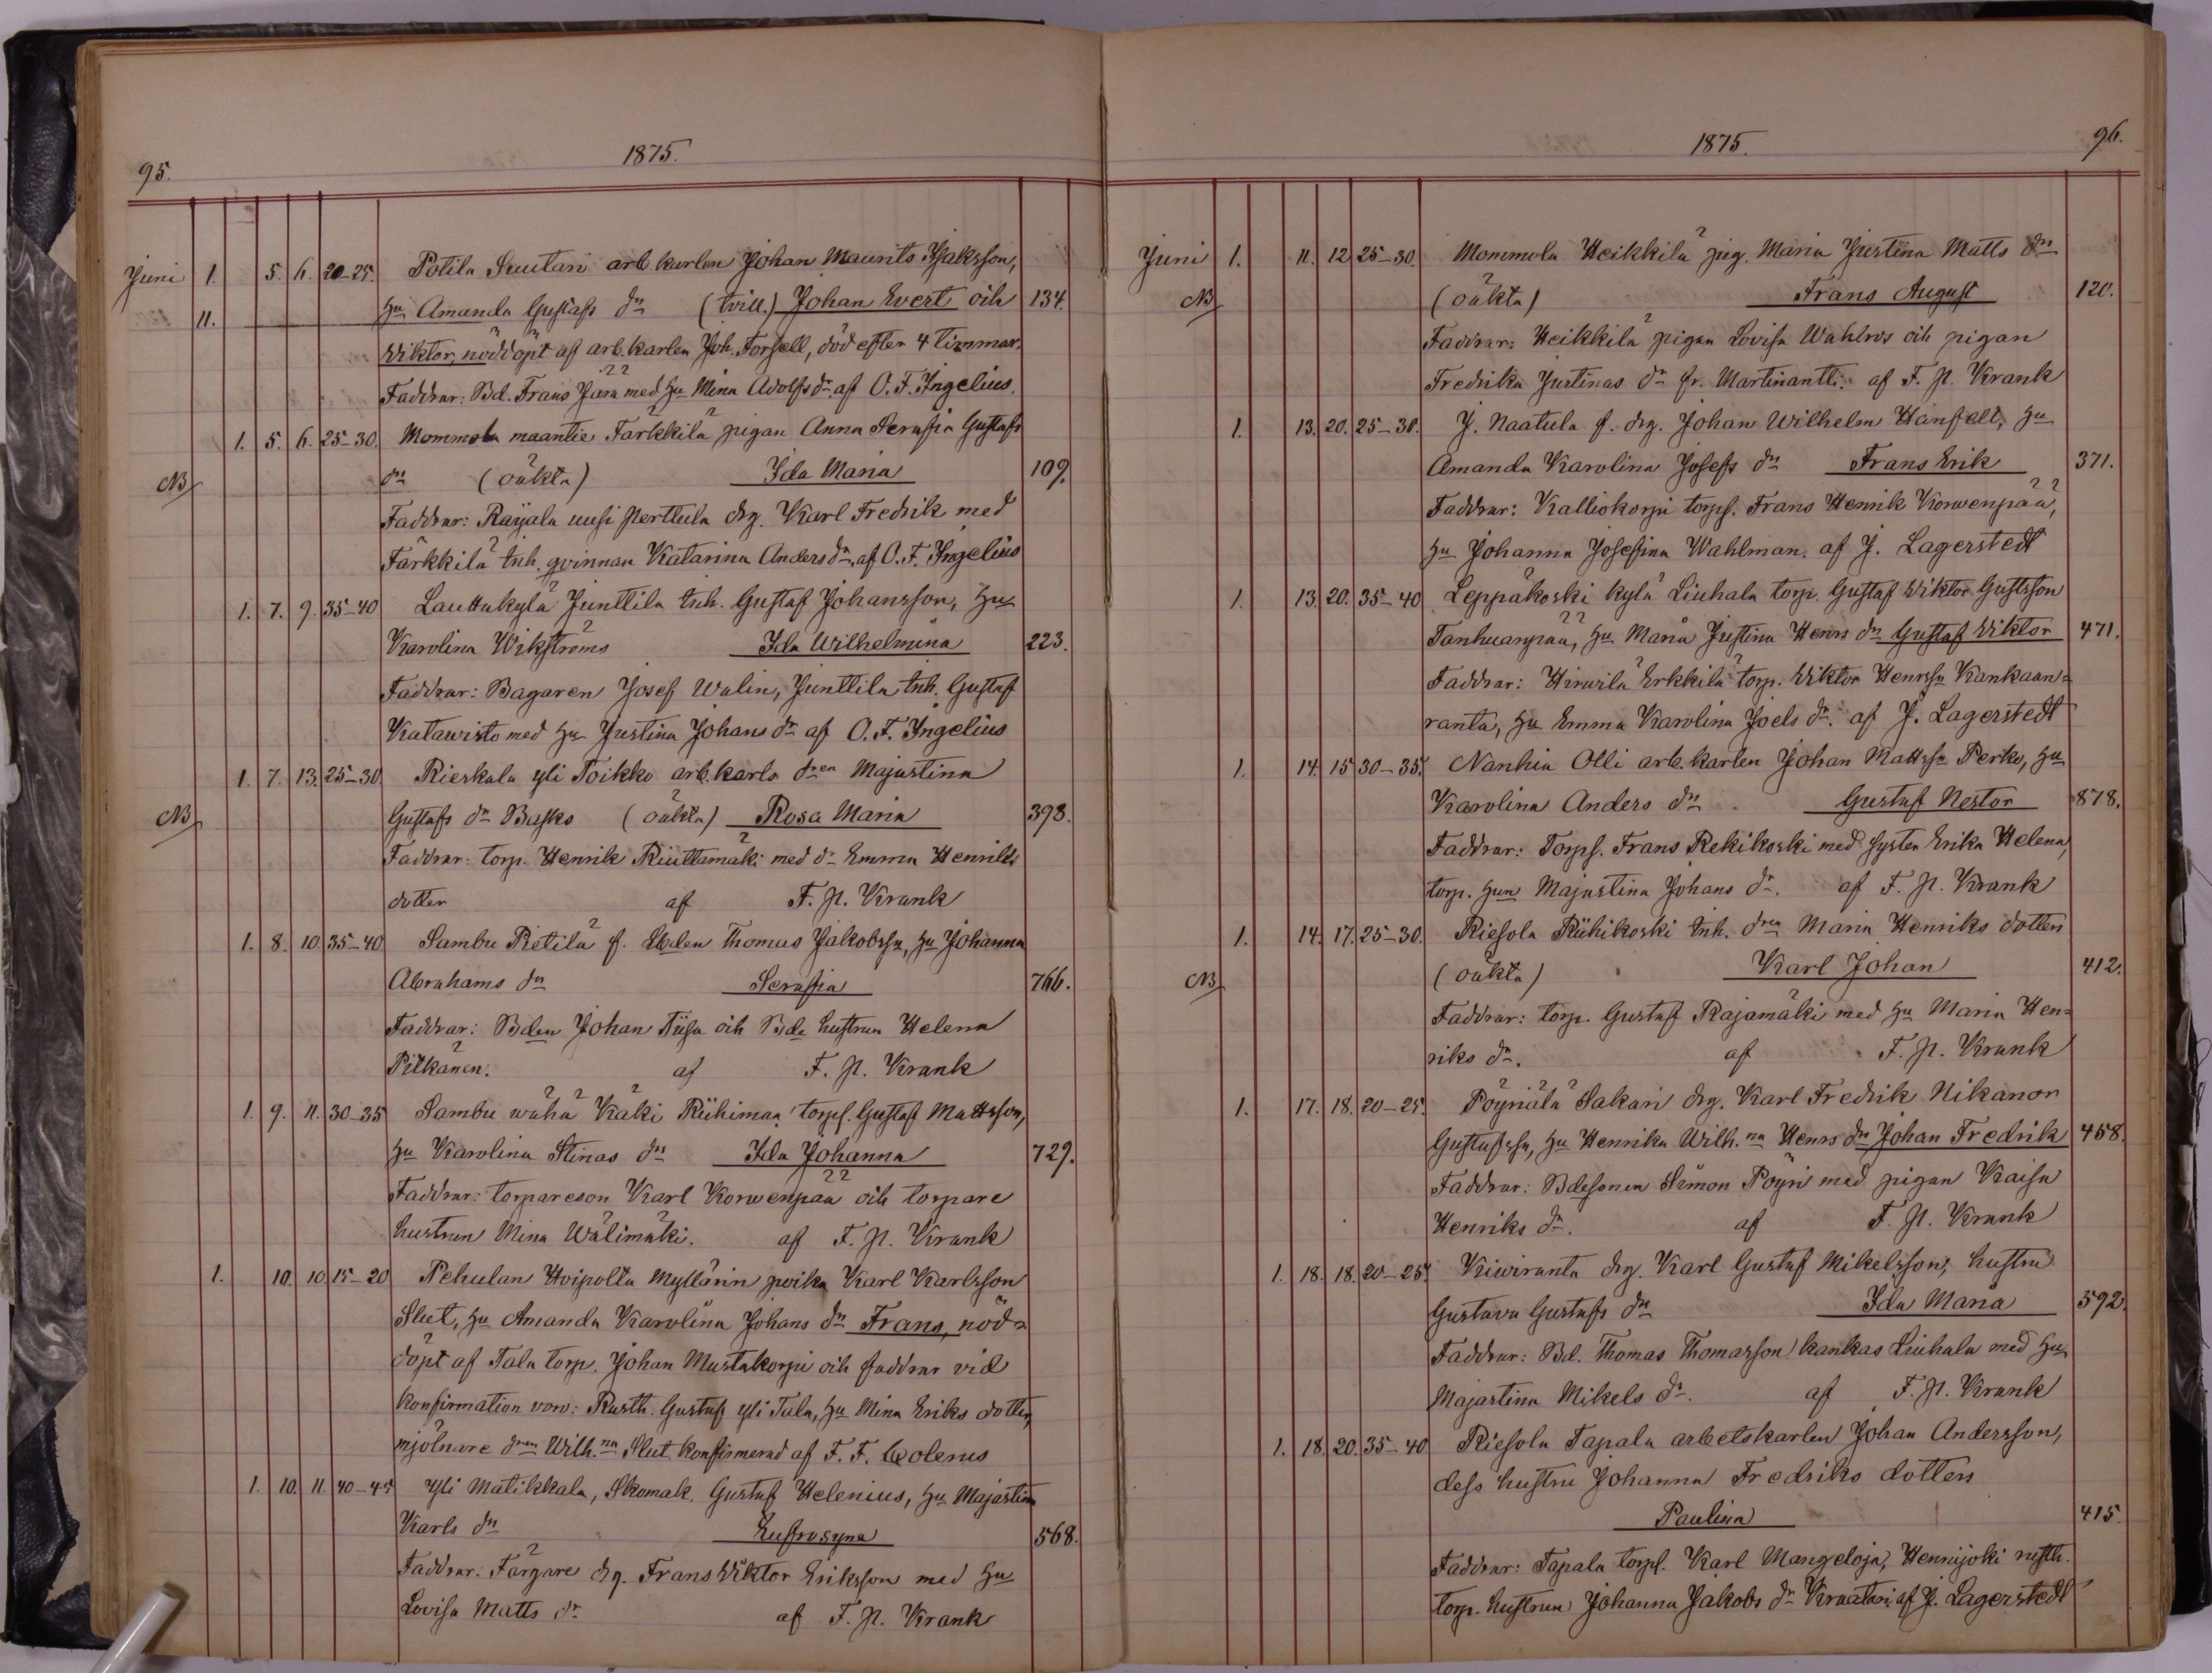 95.
1875.
Juni 1. 5. 6. 20-25. Potila Suutari arb. karlen Johan Maurits Isaksson,
11. hu Amanda Gustafs dr (tvill.) Johan Evert och 134.
Wiktor, nöddöpt af arb. karlen Joh. Forsell, död efter 4 timmar.
Faddrar: Bd. Frans Jara med hu Mina Adolfs dr af O. F. Ingelius.
1. 5. 6. 25-30. Mommola maantie Färkkilä pigan Anna Serafia Gustafs
NB dr (oäkta) Ida Maria 109.
Faddrar: Raijala uusi Perttula drg. Karl Fredrik med
Färkkilä inh. qvinnan Katarina Anders dr af O. F. Ingelius
1. 7. 9. 35-40 Lauttakylä Junttila inh. Gustaf Johansson, hu
Karolina Wikströms Ida Wilhelmina 223.
Faddrar: Bagaren Josef Walin, Junttila inh. Gustaf
Katawisto med hu Justina Johans dr af O. F. Ingelius
1. 7. 13. 25-30. Rieskala yli Toikko arb. karls dren Majastina
NB Gustafs dr Basko (oäkta) Rosa Maria 398.
Faddrar: torp. Henrik Riuttamäki med dr Emma Henriks
dotter af F. P. Krank
1. 8. 10. 35-40 Sambu Ristilä f. Bden Thomas Jakobssn, hu Johanna
Abrahams dr Serafia 766.
Faddrar: Bden Johan Tiisa och Bde hustrun Helena
Pitkänen. af F. P. Krank
1. 9. 11. 30-35 Sambu wähä Käki Riihimaa torps. Gustaf Mattsson,
hu Karolina Stinas dr Ida Johanna 729.
Faddrar: torpareson Karl Korwenpää och torpare
hustrun Mina Wälimäki. af F. P. Krank
1. 10. 10. 15-20 Pehulan Hoipolla Myllärin poika Karl Karlsson
Slut, hu Amanda Karolina Johans dr Frans, nöd-
döpt af Tala torp. Johan Mustakorpi och faddrar vid
konfirmation voro: Rusth. Gustaf yli Tala, hu Mina Eriks dotter,
mjölnare dren Wilh.na Slut konfirmerad af F. F. Colerus
1. 10. 11. 40-45 Yli Matikkala, Skomak. Gustaf Helenius, hu Majastina
Karls dr Eufrosyne 568.
Faddrar: Färgare drg. Frans Wiktor Eriksson med hu
Lovisa Matts dr af F. P. Krank
96.
1875.
Juni 1. 11. 12. 25-30. Mommola Heikkilä pig. Maria Justina Matts dr
NB (oäkta) Frans August 120.
Faddrar: Heikkilä pigan Lovisa Wahlros och pigan
Fredrika Justinas dr fr. Martinantti. af F. P. Krank
1. 13. 20. 25-30. J. Naatula f. drg. Johan Wilhelm Hanfelt, hu
Amanda Karolina Josefs dr Frans Erik 371.
Faddrar: Kalliokorpi torps. Frans Henrik Korwenpää,
hu Johanna Josefina Wahlman. af J. Lagerstedt
1. 13. 20. 35-40 Leppäkoski kylä Liuhala torp. Gustaf Wiktor Gustsson
Tanhuanpää, hu Maria Justina Henrs dr Gustaf Wiktor 471.
Faddrar: Hirwilä Erkkilä torp. Wiktor Henrssn Kankaan-
ranta, hu Emma Karolina Joels dr. af J. Lagerstedt
1. 14. 15 30-35. Nanhia Olli arb. karlen Johan Mattssn Perko, hu
Karolina Anders dr Gustaf Nestor 878.
Faddrar: Torps. Frans Rekikoski med syster Erika Helena,
torp. hun Majastina Johans dr. af F. P. Krank
1. 14. 17. 25-30. Riesola Riihikoski inh. dren Maria Henriks dotters
NB (oäkta) Karl Johan 412.
Faddrar: torp. Gustaf Rajamäki med hu Maria Hen-
riks dr. af F. P. Krank
1. 17. 18. 20-25. Pöyriälä Sakari drg. Karl Fredrik Nikanor
Gustafssn, hu Henrika Wilh.na Henrs dr Johan Fredrik 458.
Faddrar: Bdesonen Simon Pöyri med pigan Kaisa
Henriks dr. af F. P. Krank
1. 18. 18. 20-25. Kiwiranta drg. Karl Gustaf Mikelsson, hustru
Gustava Gustafs dr Ida Maria 592.
Faddrar: Bd. Thomas Thomasson kankas Liuhala med hu
Majastina Mikels dr. af F. P. Krank
1. 18. 20. 35-40 Riesola Tapala arbetskarlen Johan Andersson,
dess hustru Johanna Fredriks dotters
Paulina 415.
Faddrar: Tapala torps. Karl Mangeloja, Hennijoki rusth.
torp. hustrun Johanna Jakobs dr Kraatari af J. Lagerstedt